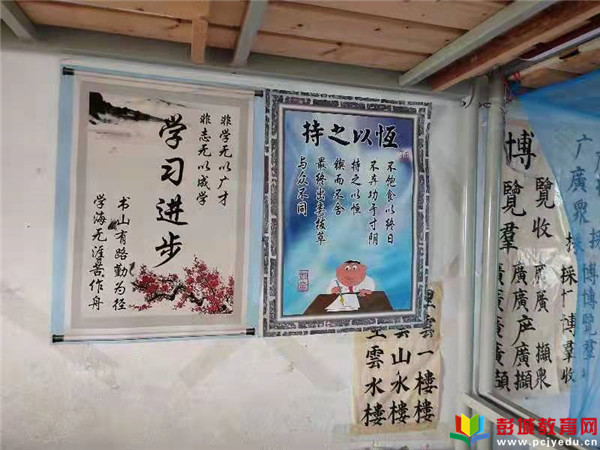 非学无以广才
非志无以成学
学习进步
书山有路勤为径
学海无涯苦作舟
持之以恆
不饱食以终日
不弃功于寸阴
持之以恒
锲而不舍
最终出类拔萃
与众不同
雲一樓樓
雲山水樓
雲水樓
博覽羣
覽收
广廣衆採
採博羣收
博博覽羣
彭城教育网
www.pcjyedu.cn